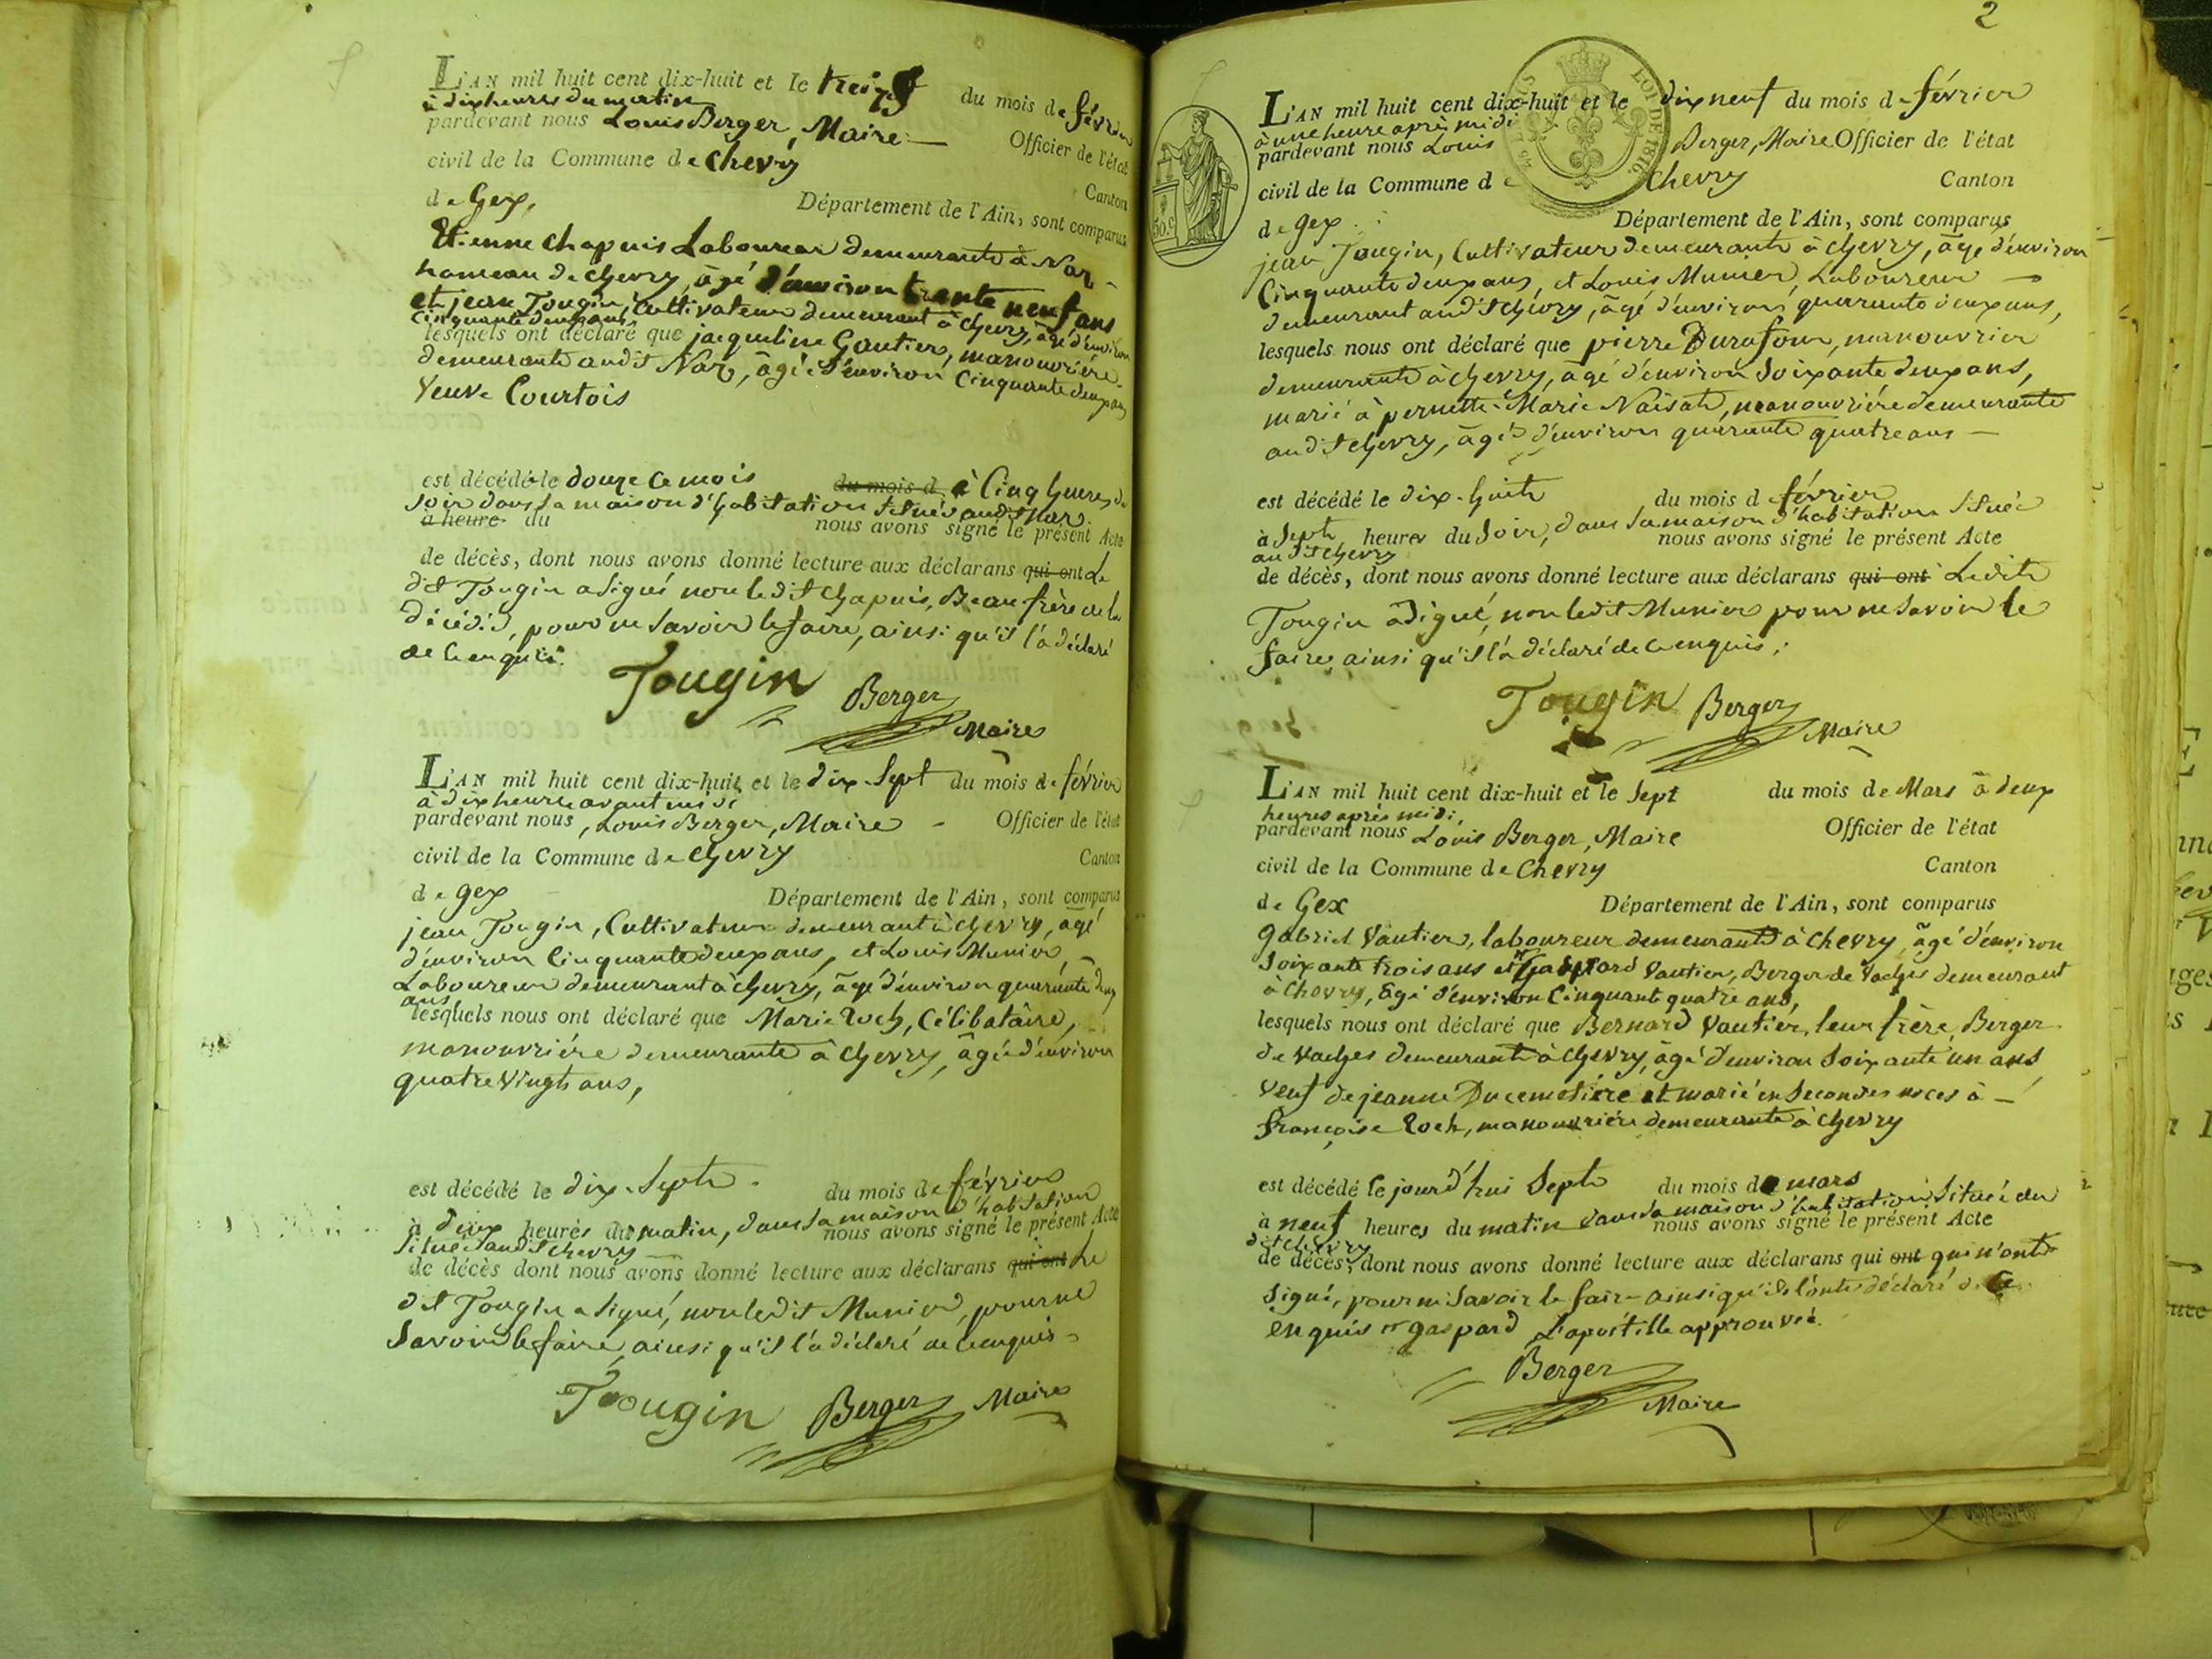 L'AN mil huit cent dix-huit et le treize du mois de février
à dix heures du matin
pardevant nous Louis Berger, Maire Officier de l'état
civil de la Commune de Chevry Canton
de Gex, Département de l'Ain, sont comparus
Etienne Chapuis Laboureur demeurante à Naz
hameau de Chevry, âgé d'environ trente neuf ans
et jean Tougin, Cultivateur demeurant à Chevry, âgé d'environ
Cinquante deux ans,
lesquels ont déclaré que jacqueline Gautier, manouvrière
demeurante audit Naz, âgée d'environ Cinquante deux ans
Veuve Courtois
est décédé le douze Ce mois du mois d à Cinq heures du
Soir dans sa maison d'habitation située audit Naz
a heure du nous avons signé le présent Acte
de décès, dont nous avons donné lecture aux déclarans qui ont Le
dit Tougin a signé non le dit Chapuis, Beaufrère de la
décédée, pour ne savoir le faire, ainsi qu'il l'a déclaré
de ce enquis.
Tougin Berger
Maire
L'AN mil huit cent dix-huit et le dix-sept du mois de février
à dix heures avant midi
pardevant nous, Louis Berger, Maire Officier de l'état
civil de la Commune de Chevry Canton
de gex Département de l'Ain, sont comparus
jean Tougin, Cultivateur demeurant à Chevry, âgé
d'environ Cinquante deux ans, et Louis Munier,
Laboureur demeurant à Chevry, âgé d'environ quarante deux
ans
lesquels nous ont déclaré que Marie Roch, Célibatâire,
manouvrière demeurante à Chevry, âgée d'environ
quatre vingts ans,
est décédé le dix-Septe du mois de février
à deux heures du matin, dans sa maison d'habitation
nous avons signé le présent Acte
située audit Chevry
de décès dont nous avons donné lecture aux déclarans qui ont Le
dit Tougin a signé, non ledit Munier, pour ne
Savoir le faire, ainsi qu'il l'a déclaré de ce enquis
Tougin Berger Maire
2
LOI DE 1816.
50.C
L'AN mil huit cent dix-huit et le dix neuf du mois de février
à une heure après midi
pardevant nous Louis Berger, Maire Officier de l'état
civil de la Commune de Chevry Canton
de gex Département de l'Ain, sont comparus
jean Tougin, Cultivateur demeurante à Chevry, âgé d'environ
Cinquante deux ans, et Louis Munier, Laboureur
demeurant audit Chevry, âgé d'environ quarante deux ans,
lesquels nous ont déclaré que pierre Durafour, manouvrier
demeurante à Chevry, âgé d'environ Soixante deux ans,
marié à pernette-Marie Naisate, manouvrière demeurante
audit Chevry, âgée d'environ quarante quatre ans
est décédé le dix-huite du mois de février
à Septe heures du Soir, dans sa maison d'habitation située
nous avons signé le présent Acte
audit Chevry
de décès, dont nous avons donné lecture aux déclarans qui ont Ledite
Tougin a signé, non ledit Munier pour ne Savoir le
faire, ainsi qu'il l'a déclaré de ce enquis;
Tougin Berger
Maire
L'AN mil huit cent dix-huit et le Sept du mois de Mars à deux
heures après midi,
pardevant nous Louis Berger, Maire Officier de l'état
civil de la Commune de Chevry Canton
de Gex Département de l'Ain, sont comparus
Gabriel Vautier, laboureur demeurante à Chevry, âgé d'environ
Soixante trois ans et Gaspard Vautier, Berger de Vaches demeurant
à Chevry, âgé d'environ Cinquante quatre ans,
lesquels nous ont déclaré que Bernard Vautier, leur frère, Berger
de Vaches demeurante à Chevry, âgé d'environ Soixante un ans
Veuf de jeanne Ducemetière et marié en Secondes noces à
françoise Roch, manouvrière demeurante à Chevry
est décédé le jourd'hui Septe du mois de mars
à neuf heures du matin dans sa maison d'habitation située au
nous avons signé le présent Acte
dit Chevry
de décès, dont nous avons donné lecture aux déclarans qui ont qui n'ont
Signé, pour ne Savoir le faire ainsi qu'ils l'ont déclaré de Ce
enquis gaspard L'apostille approuvée.
Berger
Maire